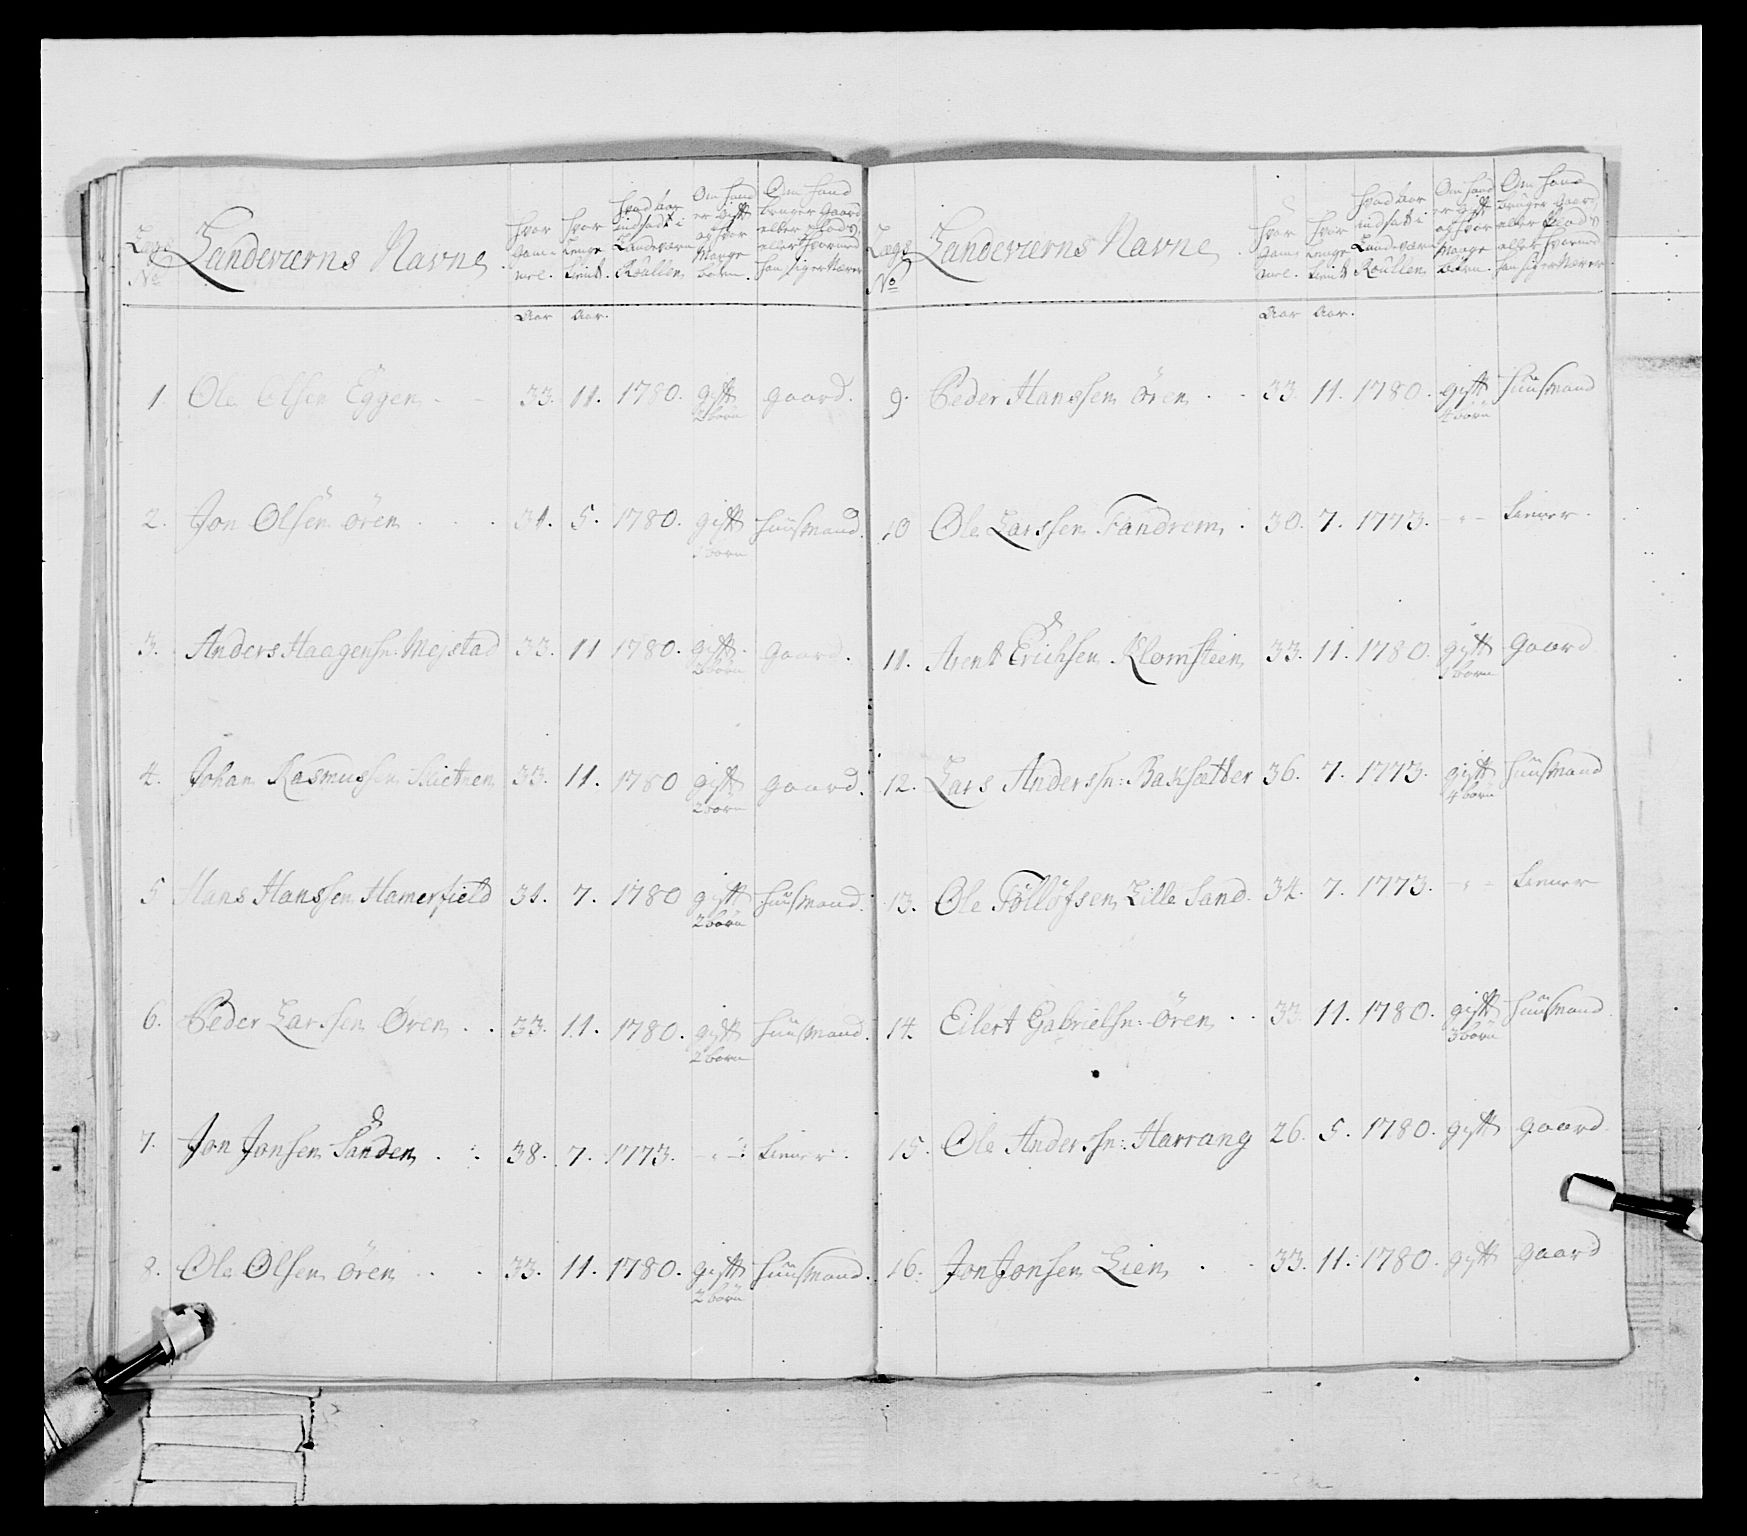 Lægs No
Landeværns Navne
Hvor Gammel.
Hvor Lenge tient.
Hvad Aar indsadt i Landeværn Roullen
Om Hand er gift og Hvor Mange börn.
Om Hand bruger Gaard eller Plads, eller Hvormed Han sig ernærer
Aar Aar.
1. Ole Olsen Eggen 33. 11. 1780. gift 2 börn gaard.
2. Jon Olsen ören 31. 5. 1780. gift börn Huusmand.
3. Anders Haagensn: Mejstad 33. 11 1780. gift. 2 börn gaard.
4. Johan Rasmussen 33. 11. 1780 gift 2 börn gaard.
5 Hans Hanssen Hamerfield 31. 7. 1780 gift 2 börn Huusmand.
6. Peder Larssen Ören 33. 11. 1780. gift 2 börn Huusmand.
7. Jon Jonsen Sanden 38. 7. 1773. - " - tiener.
8. Ole Olsen ören 33. 11. 1780. gift 2 börn Huusmand.
Lægs No
Landeværns Navne
Hvor Gammel.
Hvor Lenge tient
Hvad Aar indsat i Landeværn Roullen
Om Hand er gift og Hvor Mange börn.
Om Hand bruger Gaard, eller Plads, eller Hvormed Han sig ernærer.
Aar Aar.
9. Peder Hanssen ören 33. 11. 1780. gift 4 börn Huusmand
10 Ole Larssen Fandrem 30. 7. 1773. - " - tiener.
11. Arent Erichsen Klomsteen 33. 11. 1780. gift 1 börn gaard
12. Lars Anderssn: Baksætter 36. 7. 1773. gift 4 börn Huusmand
13. Ole Föllöfsen Lille Sand. 34. 7. 1773. - " - tiener
14. Eilert Gabrielsn: ören 33 11. 1780. gift 3 börn Huusmand
15. Ole Anderssn: Harrang 26. 5. 1780. gift gaard
16. Jon Jonsen Lien 33. 11. 1780. gift gaard